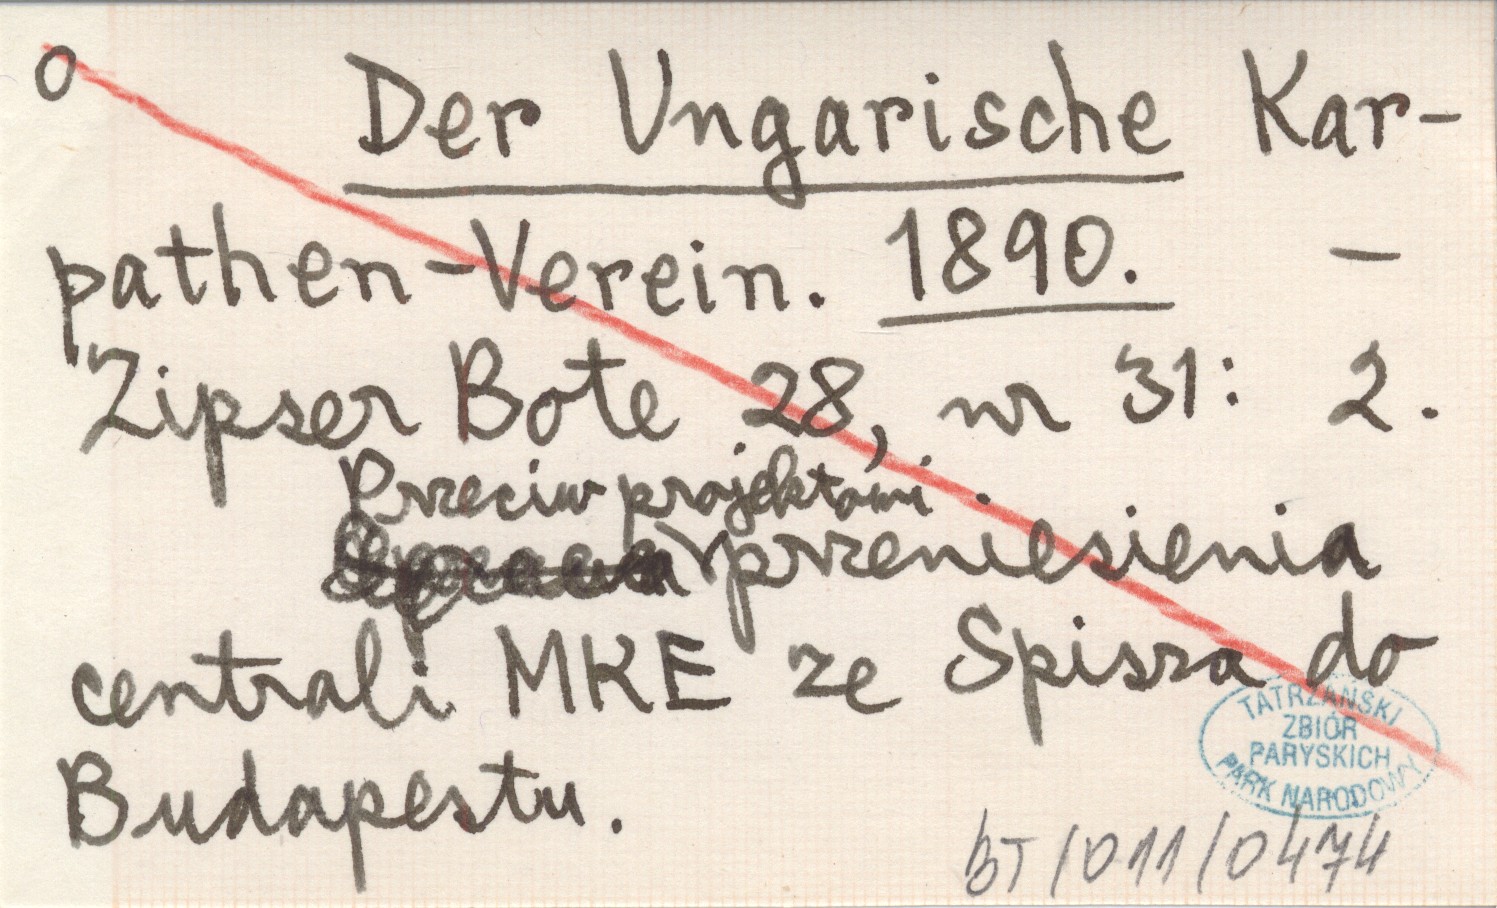 o Der Ungarische Kar-
pathen-Verein. 1890. –
Zipser Bote 28, nr 31: 2.
Przeciw projektowi
przeniesienia
centrali MKE ze Spisza do
Budapesztu.
TATRZAŃSKI
ZBIÓR
PARYSKICH
PARK NARODOWY
BT/011/0474